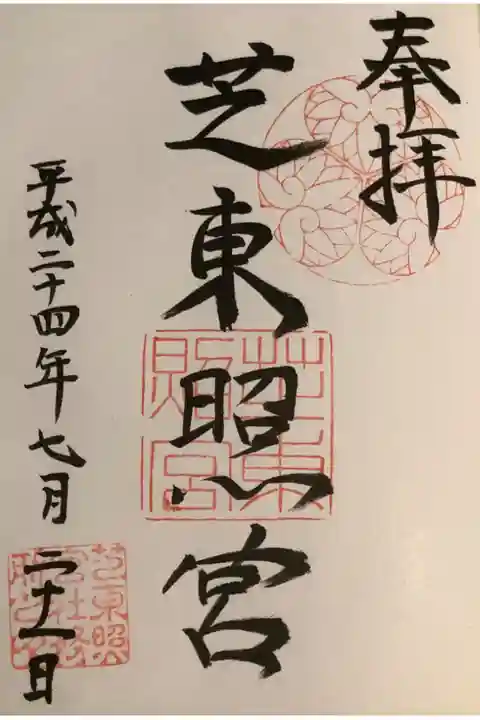 奉拝
芝東照宮
芝東照宮
平成二十四年七月二十一日
芝東照宮社務所之印